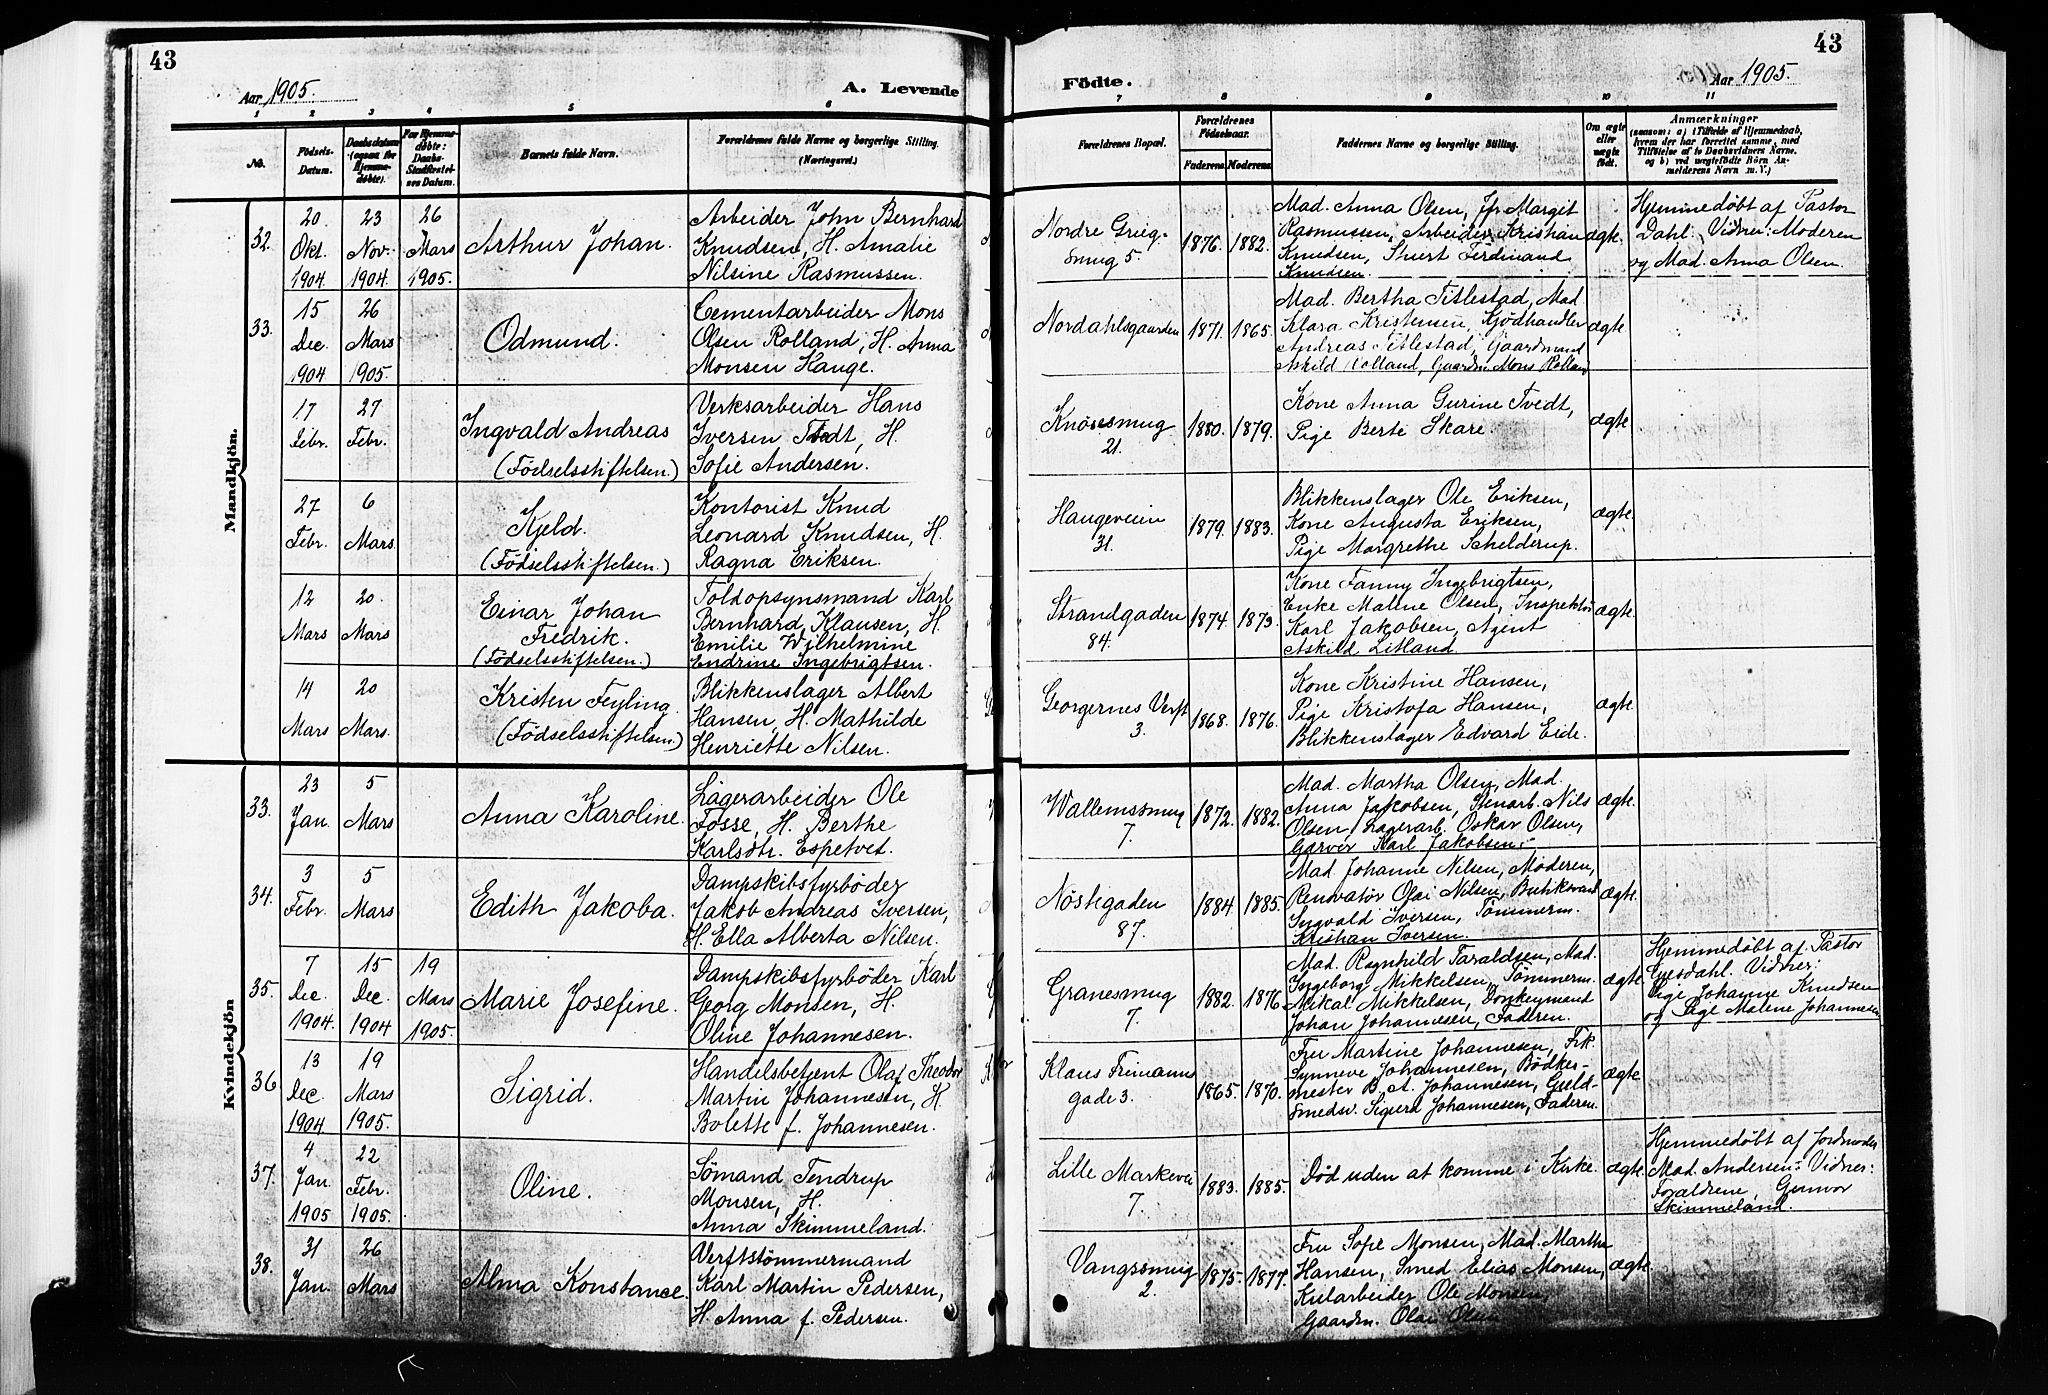 43
43
Aar 1905.
A. Levende
Födte.
Aar 1905.
1 2 3 4 5 6 7 8 9 10 11
No.
Födsels-Datum.
Daabsdatum (ogsaa for Hjemme-döbte).
For Hjemme-döbte: Daabs-Stadfæstel-ses Datum.
Barnets fulde Navn.
Forældrenes fulde Navne og borgerlige Stilling.
(Næringsvei.)
Forældrenes Bopæl.
Forældrenes Födselsaar.
Faderens
Moderens
Faddernes Navne og borgerlige Stilling.
Om ægte eller uægte födt.
Anmærkninger
(saasom: a) i Tilfælde af Hjemmedaab,
hvem der har forrettet samme, med
Tilföielse af to Daabsvidners Navne.
og b) ved uægtefödte Börn An-
melderens Navn m. V.)
Mandkjön.
32.
20 Okt. 1904
23 Nov. 1904
26 Mars 1905.
Arthur Johan.
Arbeider John Bernhard
Knudsen, H. Amalie
Nilsine Rasmussen.
Nordre Grieg-
smug 5.
1876. 1882.
Mad. Anna Olsen, Jfr Margit
Rasmussen, Arbeider Kristian
Knudsen, Stuert Ferdinand
Knudsen.
ægte.
Hjemmedøbt af Pastor
Dahl. Vidner: Moderen
og Mad. Anna Olsen.
33.
15 Dec. 1904
26 Mars 1905.
Odmund.
Cementarbeider Mons
Olsen Rolland, H. Anna
Monsen Hauge.
Nordahlsgaarden
1871. 1865.
Mad. Bertha Titlestad, Mad.
Klara Kristensen, Kjødhandler
Andreas Titlestad, Gaardmand
Askild Rolland, Gaardm. Mons Rolland
ægte
17 Febr.
27 Febr.
Ingvald Andreas
(Fødselsstiftelsen.)
Verksarbeider Hans
Iversen Tvedt, H.
Sofie Andersen.
Knøsesmug
21.
1880. 1879.
Kone Anna Gurine Tvedt,
Pige Berte Skare.
ægte
27 Febr.
6 Mars
Kjeld.
(Fødselsstiftelsen.)
Kontorist Knud
Leonard Knudsen, H.
Ragna Eriksen.
Haugeveien
31.
1879. 1883.
Blikkenslager Ole Eriksen,
Kone Augusta Eriksen,
Pige Margrethe Schelderup.
ægte.
12 Mars
20 Mars
Einar Johan
Fredrik.
(Fødselsstiftelsen.)
Toldopsynsmand Karl
Bernhard Klausen, H.
Emilie Wilhelmine
Endrine Ingebrigtsen.
Strandgaden
84.
1874. 1873.
Kone Fanny Ingebrigtsen,
Enke Malene Olsen, Inspektør
Karl Jakobsen, Agent
Askild Litland.
ægte
14 Mars
20 Mars.
Kristen Feyling.
(Fødselsstiftelsen.)
Blikkenslager Albert
Hansen, H. Mathilde
Henriette Nilsen.
Georgernes Verft
3.
1868. 1876.
Kone Kristine Hansen,
Pige Kristofa Hansen,
Blikkenslager Edvard Eide.
ægte
Kvindekjön
33.
23 Jan.
5 Mars
Anna Karoline.
Lagerarbeider Ole
Fosse, H. Berthe
Karlsdtr. Espetvet.
Wallemssmug
7.
1872. 1882.
Mad. Martha Olsen, Mad.
Anna Jakobsen, Stenarb. Nils
Olsen, Lagerarb. Oskar Olsen,
Garver Karl Jakobsen.
ægte.
34.
3 Febr.
5 Mars
Edith Jakoba.
Dampskibsfyrbøder
Jakob Andreas Iversen,
H. Ella Alberta Nilsen.
Nøstegaden
87.
1884. 1885.
Mad Johanne Nilsen, Moderen,
Renovatør Olai Nilsen, Butiksmand
Ingvald Iversen, Tømmerm.
Kristian Iversen.
ægte.
35.
7 Dec. 1904.
15 Dec. 1904
19 Mars 1905.
Marie Josefine.
Dampskibsfyrbøder Karl
Georg Monsen, H.
Oline Johannesen.
Granesmug
7.
1882. 1876
Mad. Ragnhild Taraldsen, Mad.
Ingeborg Mikkelsen, Tømmerm.
Mikal Mikkelsen, Donkeymand
Johan Johannesen, Faderen.
ægte
Hjemmedøbt af Pastor
Gjesdahl. Vidner:
Pige Johanne Knudsen
og Pige Malene Johannesen
36
13 Dec. 1904
19 Mars 1905.
Sigrid.
Handelsbetjent Olaf Theodor
Martin Johannesen, H.
Bolette f. Johannesen.
Klaus Frimanns
gade 3.
1865. 1870.
Fru Martine Johannesen, Frk.
Synneve Johannesen, Bødker-
mester B. A. Johannesen, Guld-
smedsv. Sigurd Johannesen, Faderen.
ægte
37.
4 Jan. 1905
22 Febr. 1905.
Oline.
Sømand Tendrup
Monsen, H.
Anna Skimmeland.
Lille Markevei
7.
1883. 1885.
Død uden at komme i Kirke.
ægte.
Hjemmedøbt af Jordmoder
Mad. Andersen. Vidner:
Forældrene, Gunvor
Skimmeland.
38.
31 Jan.
26 Mars
Alma Konstance.
Verftstømmermand
Karl Martin Pedersen,
H. Anna f. Pedersen.
Vangssmug
2.
1875. 1877.
Fru Sofie Monsen, Mad. Martha
Hansen, Smed Elias Monsen,
Kularbeider Ole Monsen,
Gaardm. Olai Olsen
ægte.